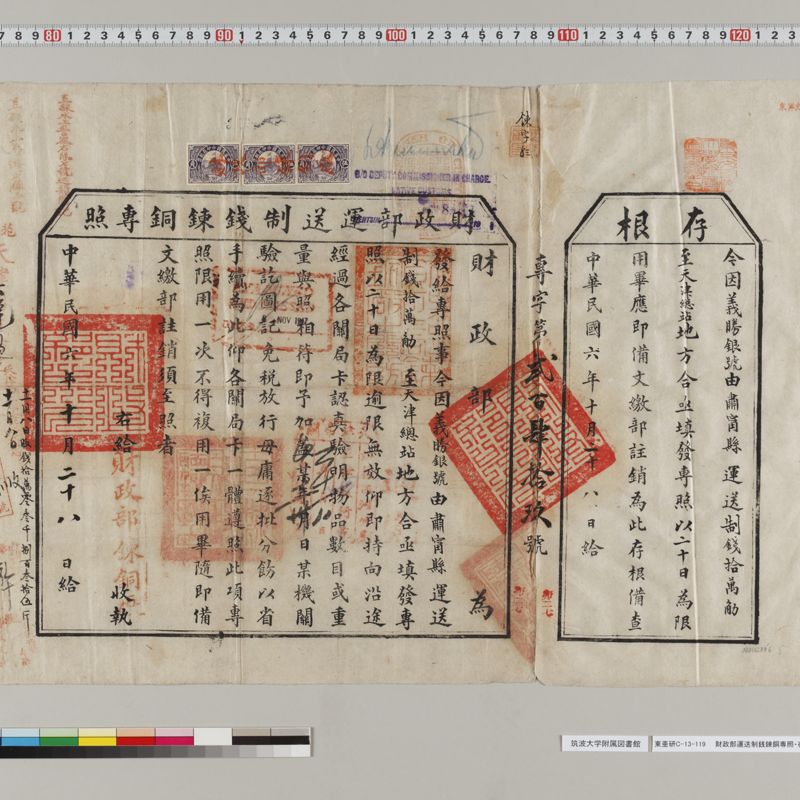 存根
今因義勝銀號由肅甯縣運送制錢拾萬觔
至天津總站地方合亟填發專照以二十日為限
用畢應即備文繳部註銷為此存根備查
中華民國六年十月二十八日給
專字第貳百肆拾玖號
財政部運送制錢鍊銅專照
財政部為
發給專照事今因義勝銀號由肅甯縣運送
制錢拾萬觔至天津總站地方合亟填發專
照以二十日為限逾限無效仰即持向沿途
經過各關局卡認真驗明物品數目或重
量與照相符即予加蓋某年月日某機關
驗訖圖記免稅放行毋庸逐批分飭以省
手續為此仰各關局卡一體遵照此項專
照限用一次不得複用一俟用畢隨即備
文繳部註銷須至照者
右給
收執
中華民國六年十月二十八日給
DEPUTY COMMISSIONER IN CHARGE.
NATIVE CUSTOMS
NOV 1917
筑波大学附属図書館
東亜研C-13-119 財政部運送制銭錬銅専照・
80
90
100
110
120